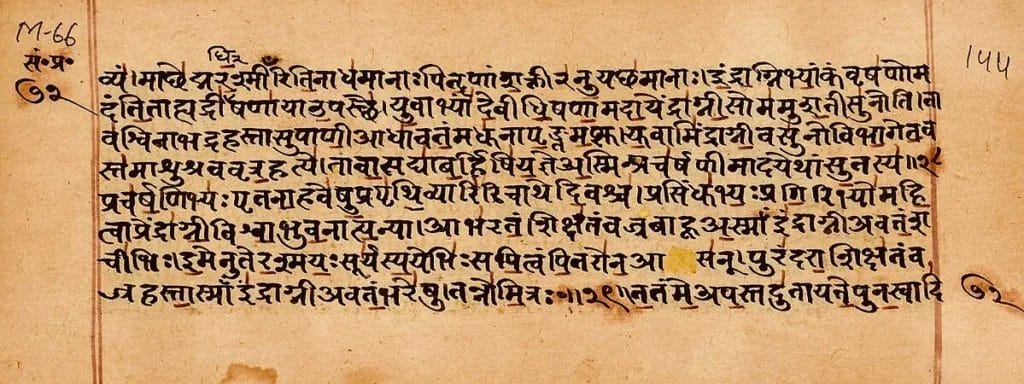 M-66
धि२
सं॰प्र॰
७२
१५५
व्यं।माछेद्मरश्मीँरितिनाधमानाःपितॄणांशक्तीरनुयछमानाः।इंद्राग्निभ्यांकंवृषणोम
दंतिताह्यद्रीधिषणायाउपस्थे।युवाभ्यांदेवीधिषणामदायेंद्राग्नीसोममुशतीसुनोति।ता
वश्विनाभद्रहस्तासुपाणीआधावतंमधुनापृङ्क्तमप्सु।युवामिंद्राग्नीवसुनोविभागेतव
स्तमाशुश्रववृत्रहत्ये।तावासद्याबर्हिषियज्ञेअस्मिन्प्रचर्षणीमादयेथांसुतस्य॥२८
प्रचर्षणिभ्यःपृतनाहवेषुप्रपृथिव्यारिरिचाथेदिवश्च।प्रसिंधुभ्यःप्रगिरिभ्योमहि
त्वाप्रेंद्राग्नीविश्वाभुवनात्यन्या।आभरतंशिक्षतंवज्रबाहूअस्माँइंद्राग्नीअवतंश
चीभिः।इमेनुतेरश्मयःसूर्यस्ययेभिःसपित्वंपितरोनआसन्।पुरंदराशिक्षतंव
ज्रहस्तास्माँइंद्राग्नीअवतंभरेषु।तन्नोमित्रः॰॥२९॥ततंमेअपस्तदुतायतेपुनस्वादि
७२